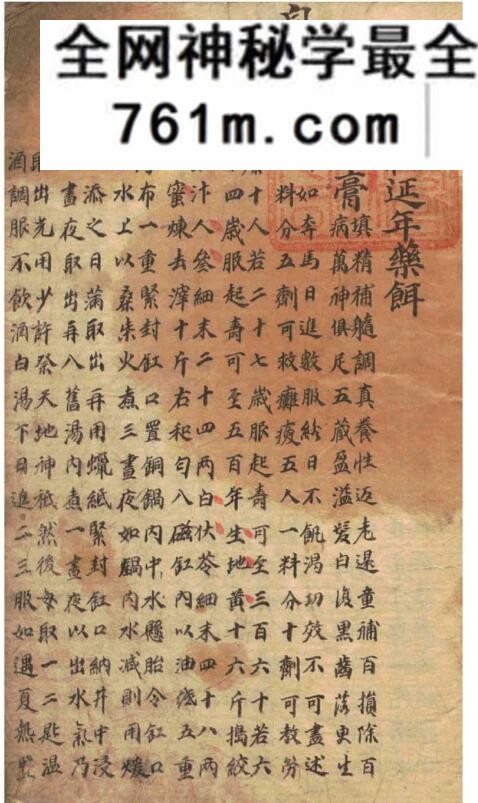 全网神秘学最全
761m.com
延年藥餌
膏
填精補髓調真養性返老還童補百損除百
病萬神俱足五藏盈溢髮白復黑齒落更生
如奔馬日進數服終日不飢渴功效不可盡述
料分五劑可救癱五人一料分十劑可救勞
十人若二十七歲服起壽可至三百六十若六
四歲服起壽可至五百年生地黃十六斤搗絞
汁人參細末二十四兩白伏苓細末四十八兩
蜜煉去滓十斤右和匀入磁缸內以油纸五重
布一重緊封缸口置銅鍋內中水懸胎令缸口
水上以桑柴火煮三晝夜如鍋內水減則用煖
添之日滿取出再用蠟紙緊封缸口納井中浸
晝夜取出再入舊湯內煮一晝夜以出水氣乃
取出先用少許祭天地神祇然後每取一二匙溫
酒調服不飲酒白湯下日進二三服如遇夏熱